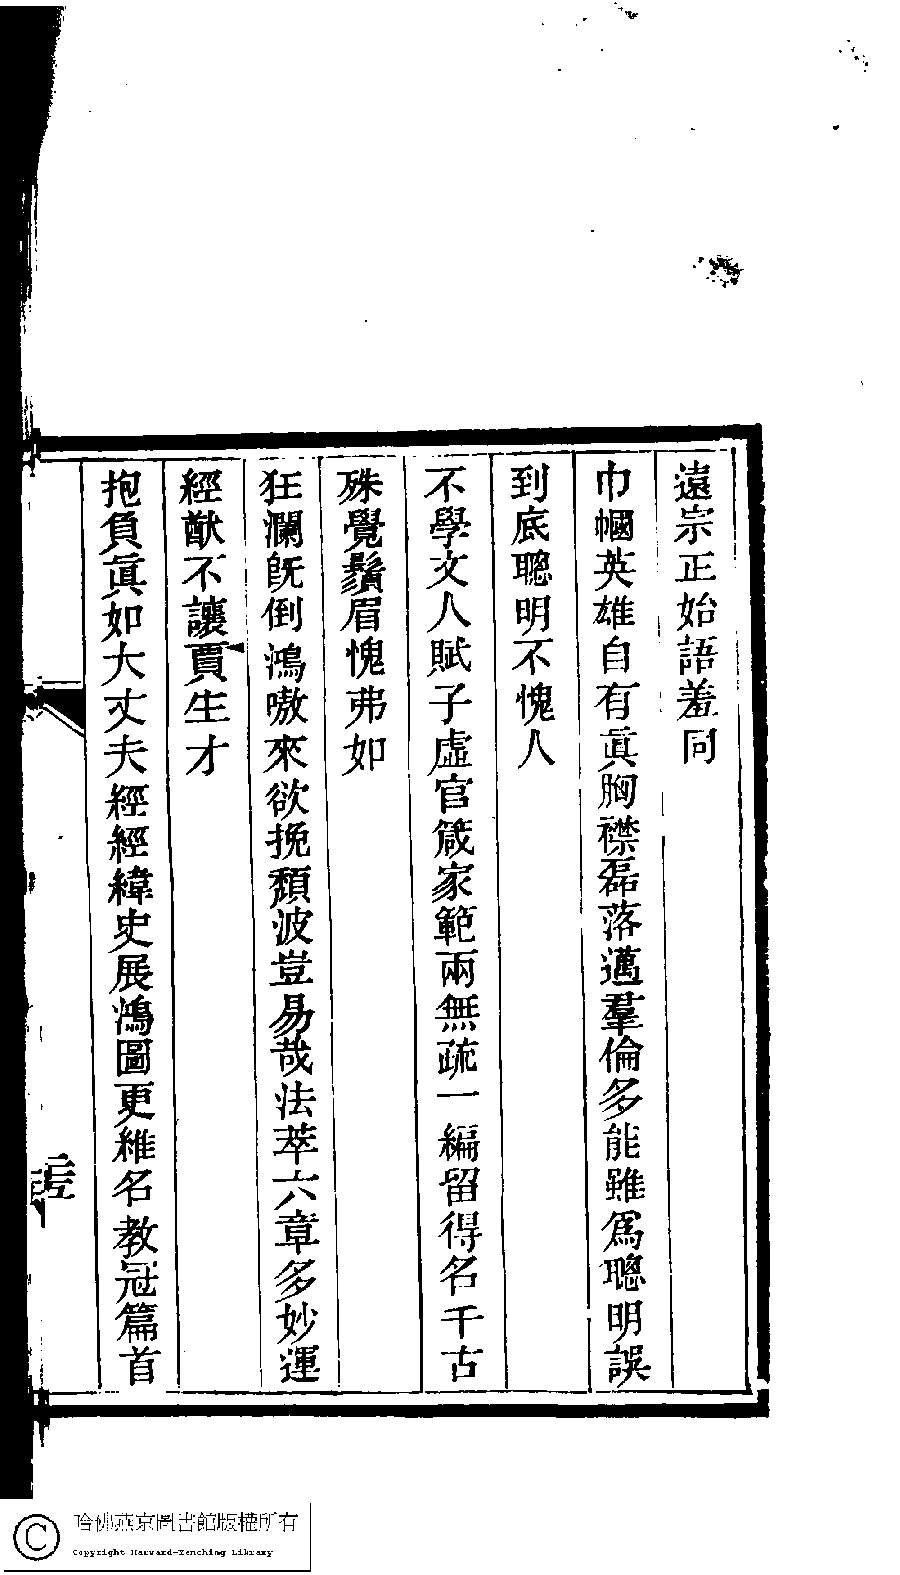 遠宗正始語羞同
巾幗英雄自有眞胸襟磊落邁羣倫多能雖爲聰明誤
到底聰明不愧人
不學文人賦子虛官箴家範兩無疏一編留得名千古
殊覺鬚眉愧弗如
狂瀾旣倒鴻嗷來欲挽頹波豈易哉法萃六章多妙運
經猷不讓賈生才
抱負眞如大丈夫經經緯史展鴻圖更維名教冠篇首
哈佛燕京圖書館版權所有
Copyright Harvard-Yenching Library